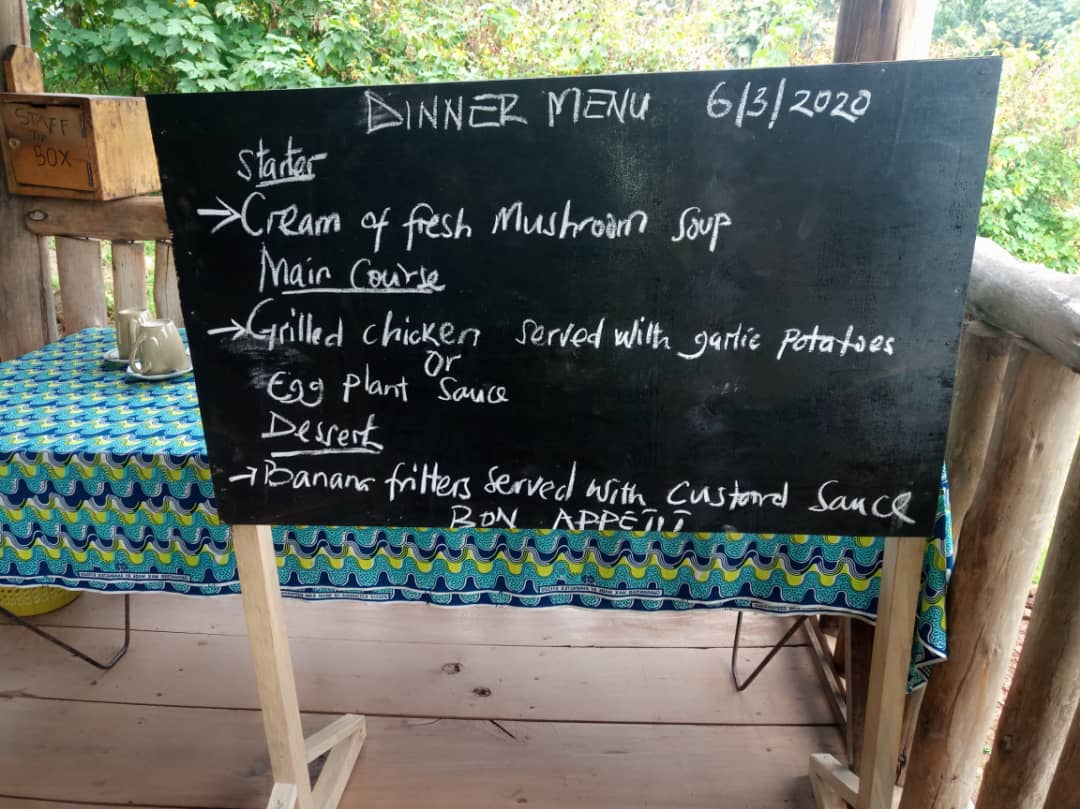 DINNER MENU 6/3/2020
Starter
→Cream of fresh Mushroom Soup
Main Course
→Grilled chicken served with garlic potatoes
Or
Egg plant Sauce
Dessert
→Banana fritters served with custard Sauce
BON APPETIT
STAFF
BOX